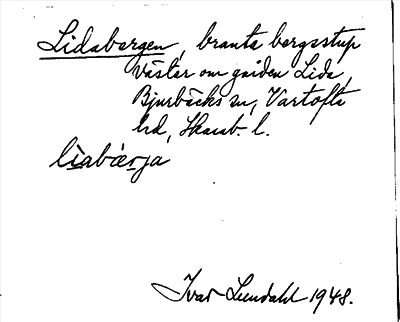 Lidabergen, branta bergsstup
väster om gården Lida,
Bjurbäcks sn, Vartofta
hd, Skarab. l.
lìabæ̀rja
Ivar Lundahl 1948.